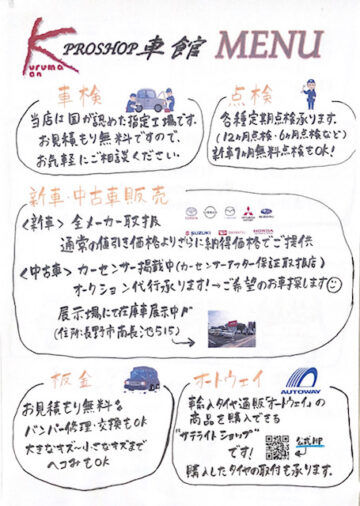 Kuruma Kan
PROSHOP 車館 MENU
車検
当店は国が認めた指定工場です。
お見積もり無料ですので、
お気軽にご相談ください。
点検
各種定期点検承ります。
(12ヵ月点検・6ヵ月点検など)
新車1ヵ月無料点検もOK!
新車・中古車販売
<新車> 全メーカー取扱
TOYOTA NISSAN MAZDA MITSUBISHI SUBARU
SUZUKI DAIHATSU HONDA
通常の値引き価格よりさらに納得価格でご提供
<中古車> カーセンサー掲載中(カーセンサーアフター保証取扱店)
オークション代行承ります!→ご希望のお車探します
展示場にて在庫車展示中♪
(住所:長野市南長池515)
板金
お見積もり無料!
バンパー修理・交換もOK
大きなキズ〜小さなキズまで
ヘコみもOK
オートウェイ
AUTOWAY
輸入タイヤ通販「オートウェイ」の
商品を購入できる
"サテライトショップ"
です!
公式HP
購入したタイヤの取付も承ります。